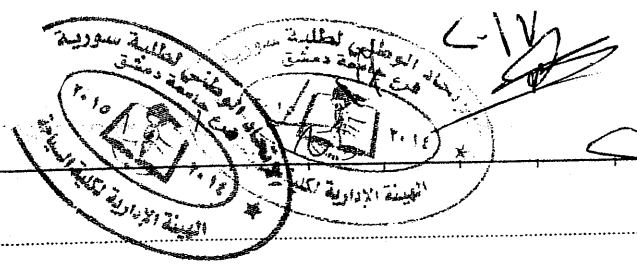 الاتحاد الوطني لطلبة سورية
فرع جامعة دمشق
٢٠١٥
٢٠١٤
الهيئة الإدارية لكلية السياحة
الاتحاد الوطني لطلبة سورية
فرع جامعة دمشق
٢٠١٤
الهيئة الإدارية لكلية
٢٠١٧